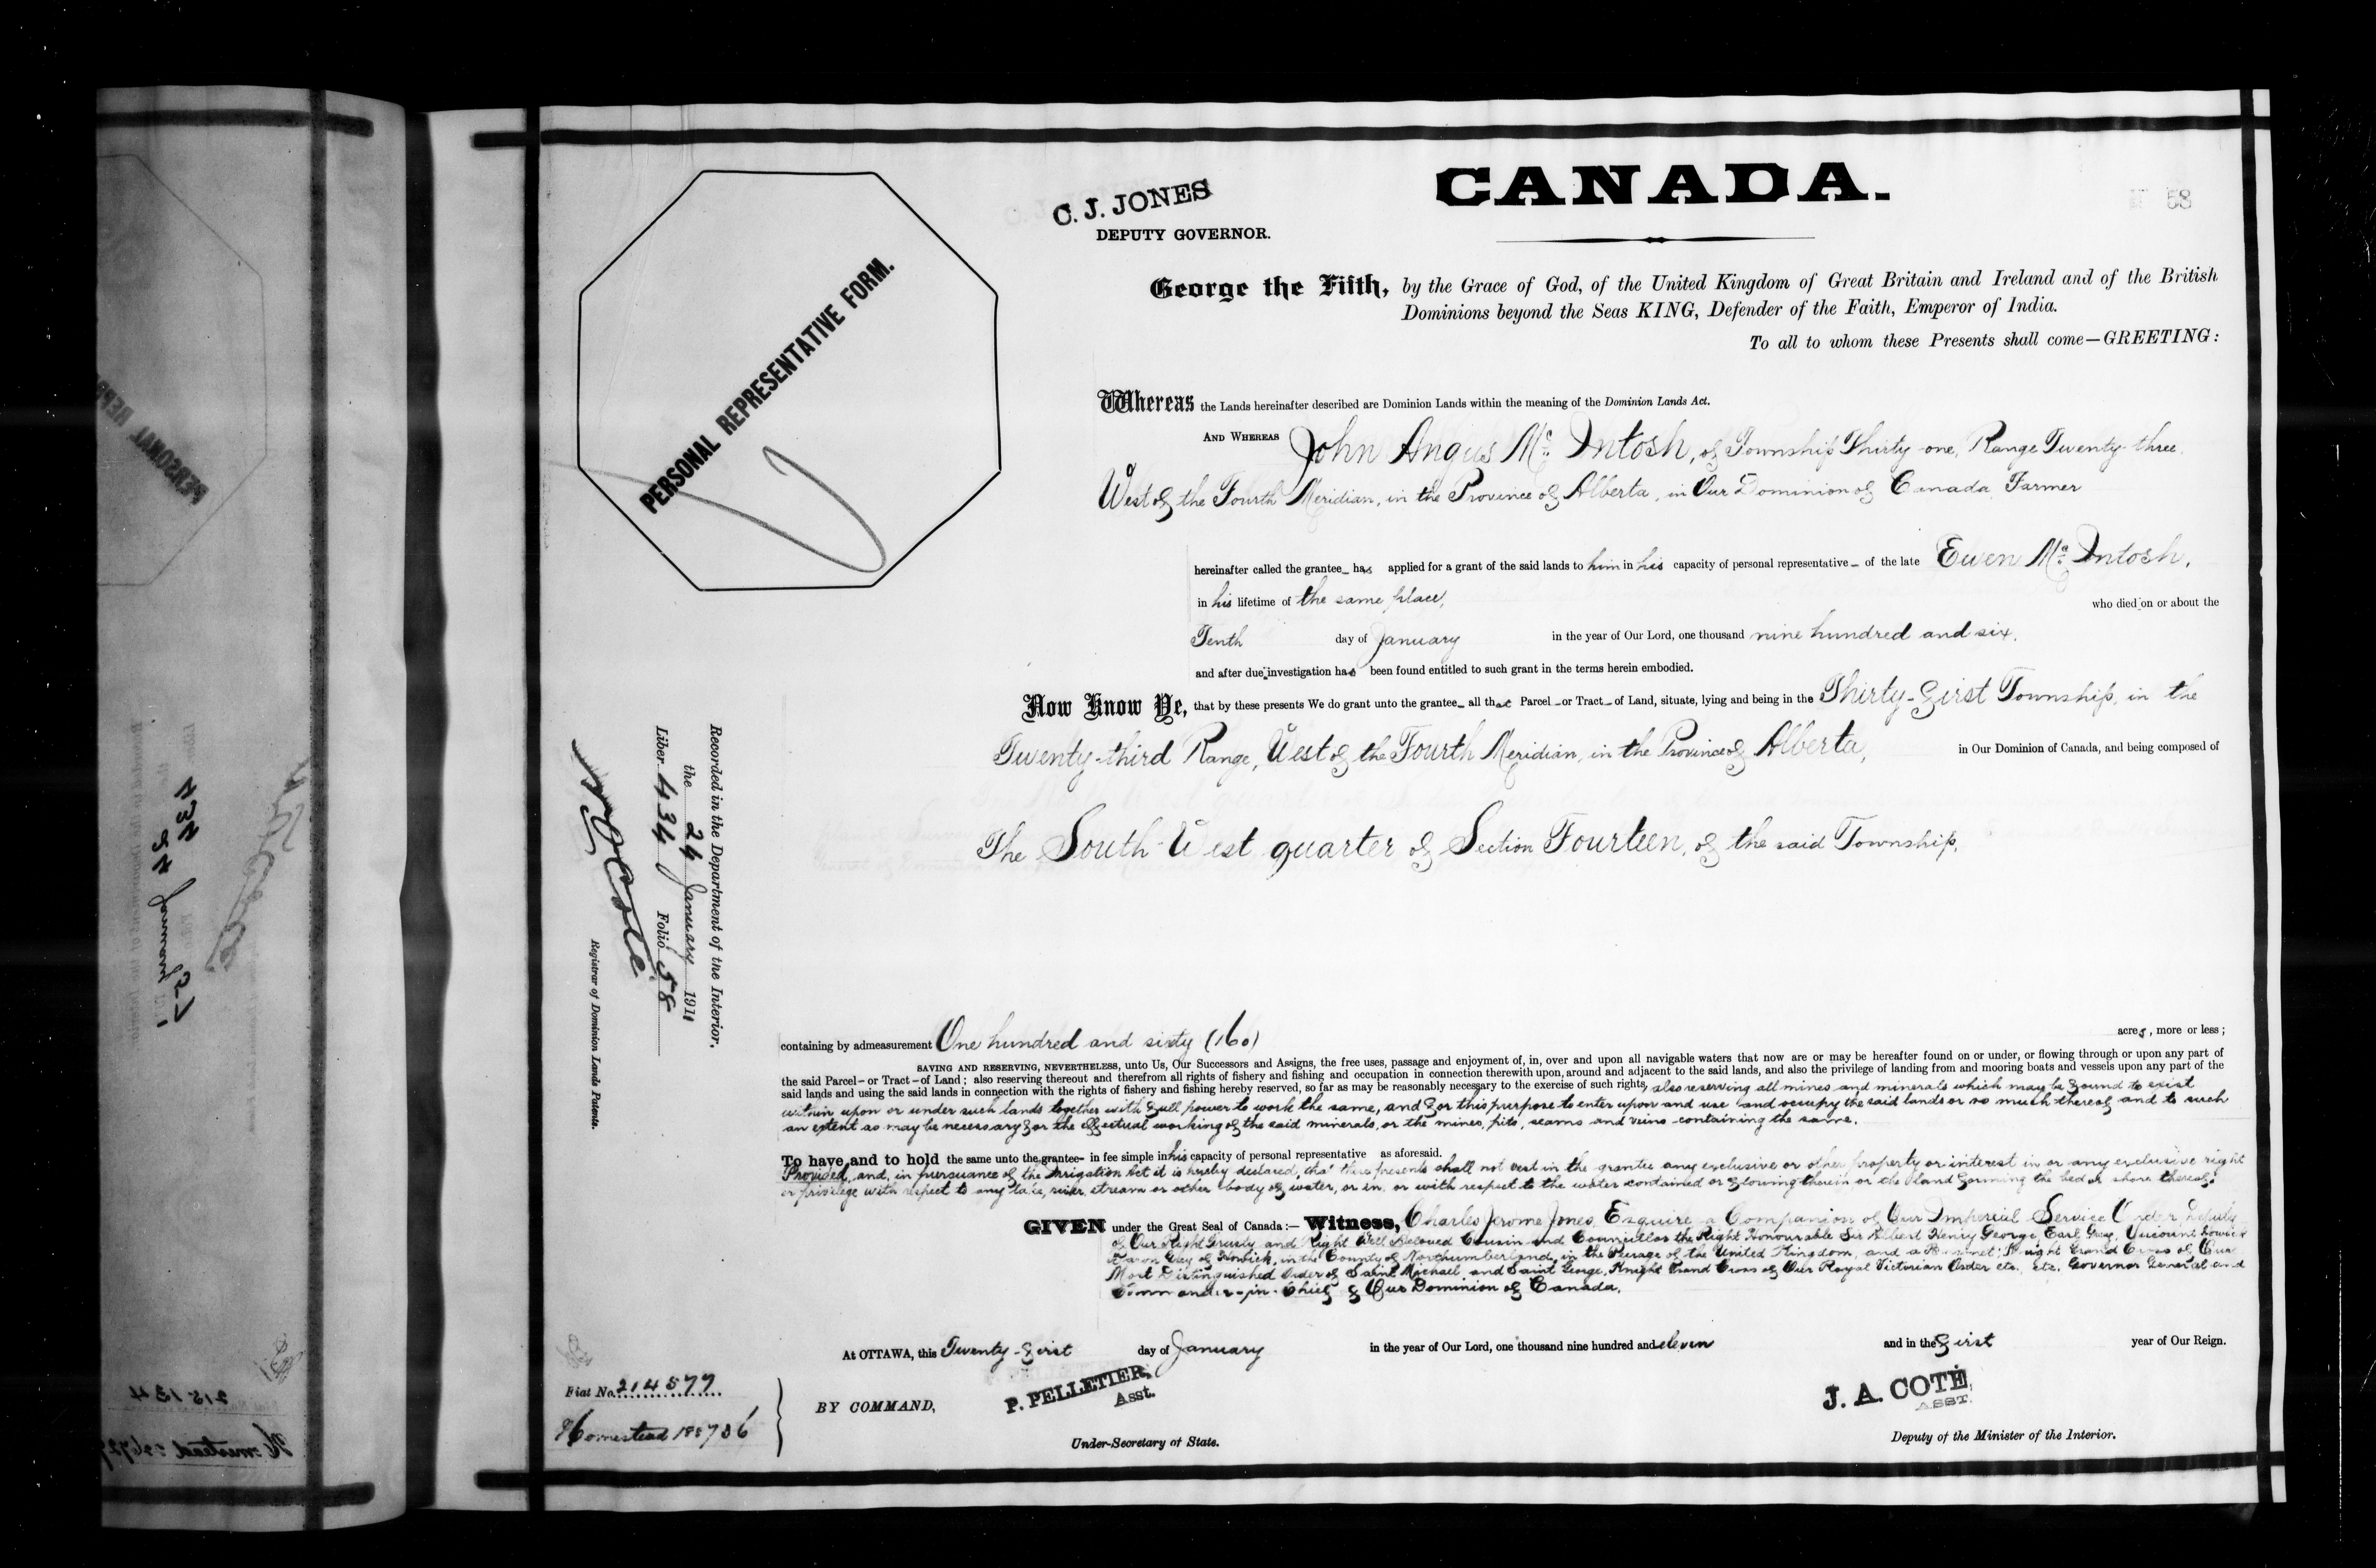 C. J. JONES
DEPUTY GOVERNOR.
CANADA.
58
PERSONAL REPRESENTATIVE FORM.
George the Fifth, by the Grace of God, of the United Kingdom of Great Britain and Ireland and of the British
Dominions beyond the Seas KING, Defender of the Faith, Emperor of India.
To all to whom these Presents shall come—GREETING:
Whereas the Lands hereinafter described are Dominion Lands within the meaning of the Dominion Lands Act.
AND WHEREAS John Angus Mc Intosh, of Township Thirty-one, Range Twenty-three,
West of the Fourth Meridian, in the Province of Alberta, in Our Dominion of Canada, Farmer
hereinafter called the grantee has applied for a grant of the said lands to him in his capacity of personal representative of the late Ewen Mc Intosh,
in his lifetime of the same place, who died on or about the
Tenth day of January in the year of Our Lord, one thousand nine hundred and six,
and after due investigation has been found entitled to such grant in the terms herein embodied.
Now Know Ye, that by these presents We do grant unto the grantee all that Parcel or Tract of Land, situate, lying and being in the Thirty-first Township, in the
Twenty-third Range, West of the Fourth Meridian, in the Province of Alberta, in Our Dominion of Canada, and being composed of
The South West quarter of Section Fourteen, of the said Township,
Recorded in the Department of the Interior,
the 24 January 1911
Liber 434 Folio 58
J A Coté
Registrar of Dominion Lands Patents.
containing by admeasurement One hundred and sixty (160) acres, more or less;
SAVING AND RESERVING, NEVERTHELESS, unto Us, Our Successors and Assigns, the free uses, passage and enjoyment of, in, over and upon all navigable waters that now are or may be hereafter found on or under, or flowing through or upon any part of
the said Parcel or Tract of Land; also reserving thereout and therefrom all rights of fishery and fishing and occupation in connection therewith upon, around and adjacent to the said lands, and also the privilege of landing from and mooring boats and vessels upon any part of the
said lands and using the said lands in connection with the rights of fishery and fishing hereby reserved, so far as may be reasonably necessary to the exercise of such rights, also reserving all mines and minerals which may be found to exist
within upon or under such lands together with full power to work the same, and for this purpose to enter upon and use and occupy the said lands or so much thereof and to such
an extent as may be necessary for the effectual working of the said minerals, or the mines, pits, seams and veins containing the same.
To have and to hold the same unto the grantee in fee simple in his capacity of personal representative as aforesaid.
Provided, and, in pursuance of the Irrigation Act it is hereby declared, that these presents shall not vest in the grantee any exclusive or other property or interest in or any exclusive right
or privilege with respect to any lake, river, stream or other body of water, or in, or with respect to the water contained or flowing therein or the land forming the bed or shore thereof.
GIVEN under the Great Seal of Canada:— Witness, Charles Jerome Jones, Esquire a Companion of Our Imperial Service Order, Deputy
of Our Right Trusty and Right Well Beloved Cousin and Councillor the Right Honourable Sir Albert Henry George, Earl Grey, Viscount Howick
Baron Grey of Howick, in the County of Northumberland, in the Peerage of the United Kingdom, and a Baronet; Knight Grand Cross of Our
Most Distinguished Order of Saint Michael and Saint George, Knight Grand Cross of Our Royal Victorian Order etc. etc. Governor General and
Commander-in-Chief of Our Dominion of Canada.
At OTTAWA, this Twenty-first day of January in the year of Our Lord, one thousand nine hundred and eleven and in the first year of Our Reign.
Fiat No. 214577
BY COMMAND,
P. PELLETIER,
Asst.
Under-Secretary of State.
J. A. COTÉ,
ASST.
Deputy of the Minister of the Interior.